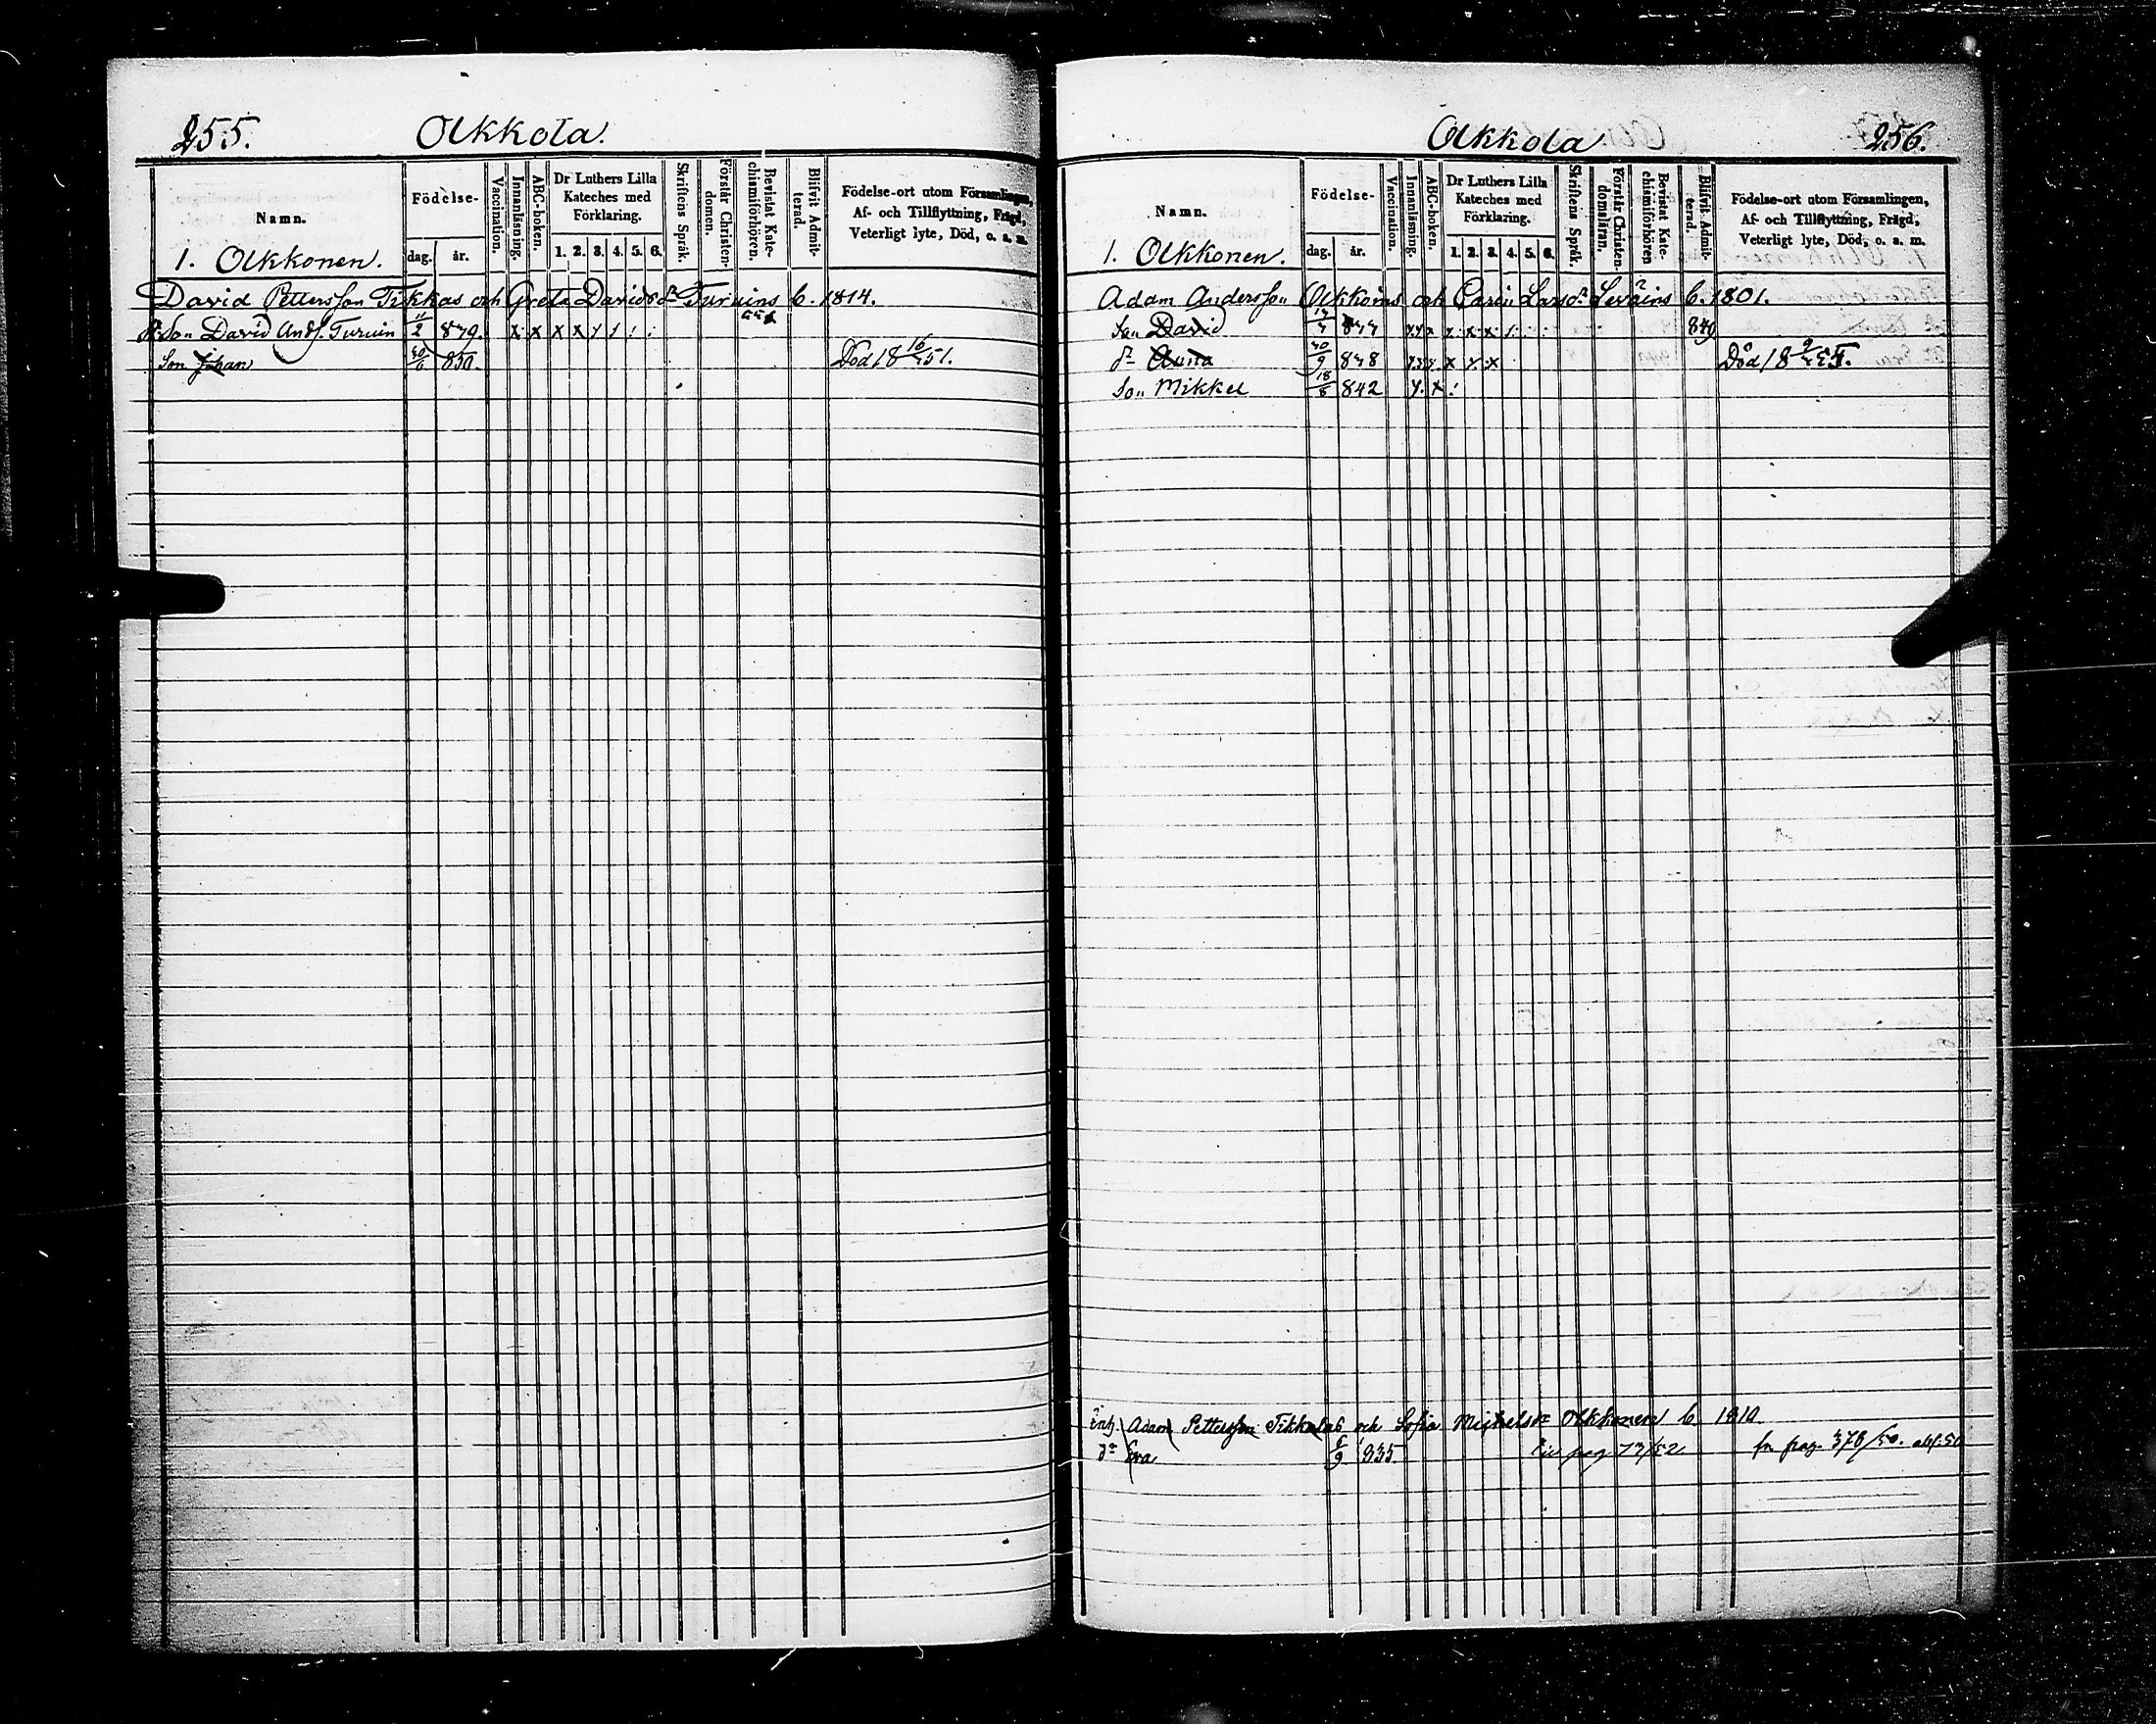 255.
Olkkola.
Namn.
1. Olkkonen.
Födelse-
dag. år.
Vaccination.
Innanläsning.
ABC-boken.
Dr Luthers Lilla
Kateches med
Förklaring.
1. 2. 3. 4. 5. 6.
Skriftens Språk.
Förstår Christen-
domen.
Bevistat Kate-
chismiförhören.
Blifvit Admit-
terad.
Födelse-ort utom Församlingen,
Af- och Tillflyttning, Frägd,
Veterligt lyte, Död, o. s. m.
David Pettersson Tikkas och Greta Davidsdr Turuins b. 1814.
Son David Andf. Turuin 11/2 839. x x x x
Son Johan 850. Död 18 51.
Olkkola
256.
Namn.
1. Olkkonen.
Födelse-
dag. år.
Vaccination.
Innanläsning.
ABC-boken.
Dr Luthers Lilla
Kateches med
Förklaring.
1. 2. 3. 4. 5. 6.
Skriftens Språk.
Förstår Christen-
domsläran.
Bevistat Kate-
chismiförhören
Blifvit Admit-
terad.
Födelse-ort utom Församlingen,
Af- och Tillflyttning, Frägd,
Veterligt lyte, Död, o. s. m.
Adam Andersson Olkkoins och Carin Larsdr Leväins b. 1801.
Son David
dr Anna 30/9 838 x x x Död 18
Son Mikkel 18/8 842
Adam Pettersson Tikka och Sofia Michelsdr Olkkonen b. 1810
dr Eva 6/9 835 pag 73/52 fr pag. 378/50.